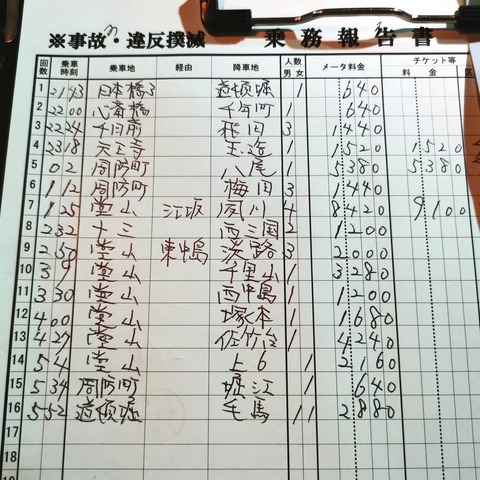 ※事故・違反撲滅 乗務報告書
回数 乗車時刻 乗車地 経由 降車地 人数 男 女 メータ料金 チケット等 料金 区
1 2143 日本橋3 道頓堀 1 640
2 2200 心斎橋 千年町 1 640
3 2224 千日前 稲田 3 1440
4 2318 天王寺 玉造 1 1520 1520
5 02 周防町 八尾 1 5380 5380
6 112 周防町 梅田 3 1440
7 125 堂山 江坂 夙川 4 8420 9100
8 232 十三 西三国 2 1200
9 250 堂山 東中島 淡路 3 2000
10 39 堂山 千里山 1 3280
11 330 堂山 西中島 1 1200
12 400 堂山 塚本 1 1680
13 427 堂山 佐竹台 1 4240
14 54 堂山 上6 1 2160
15 534 周防町 堀江 1 640
16 552 道頓堀 毛馬 1 1 2880
17
18